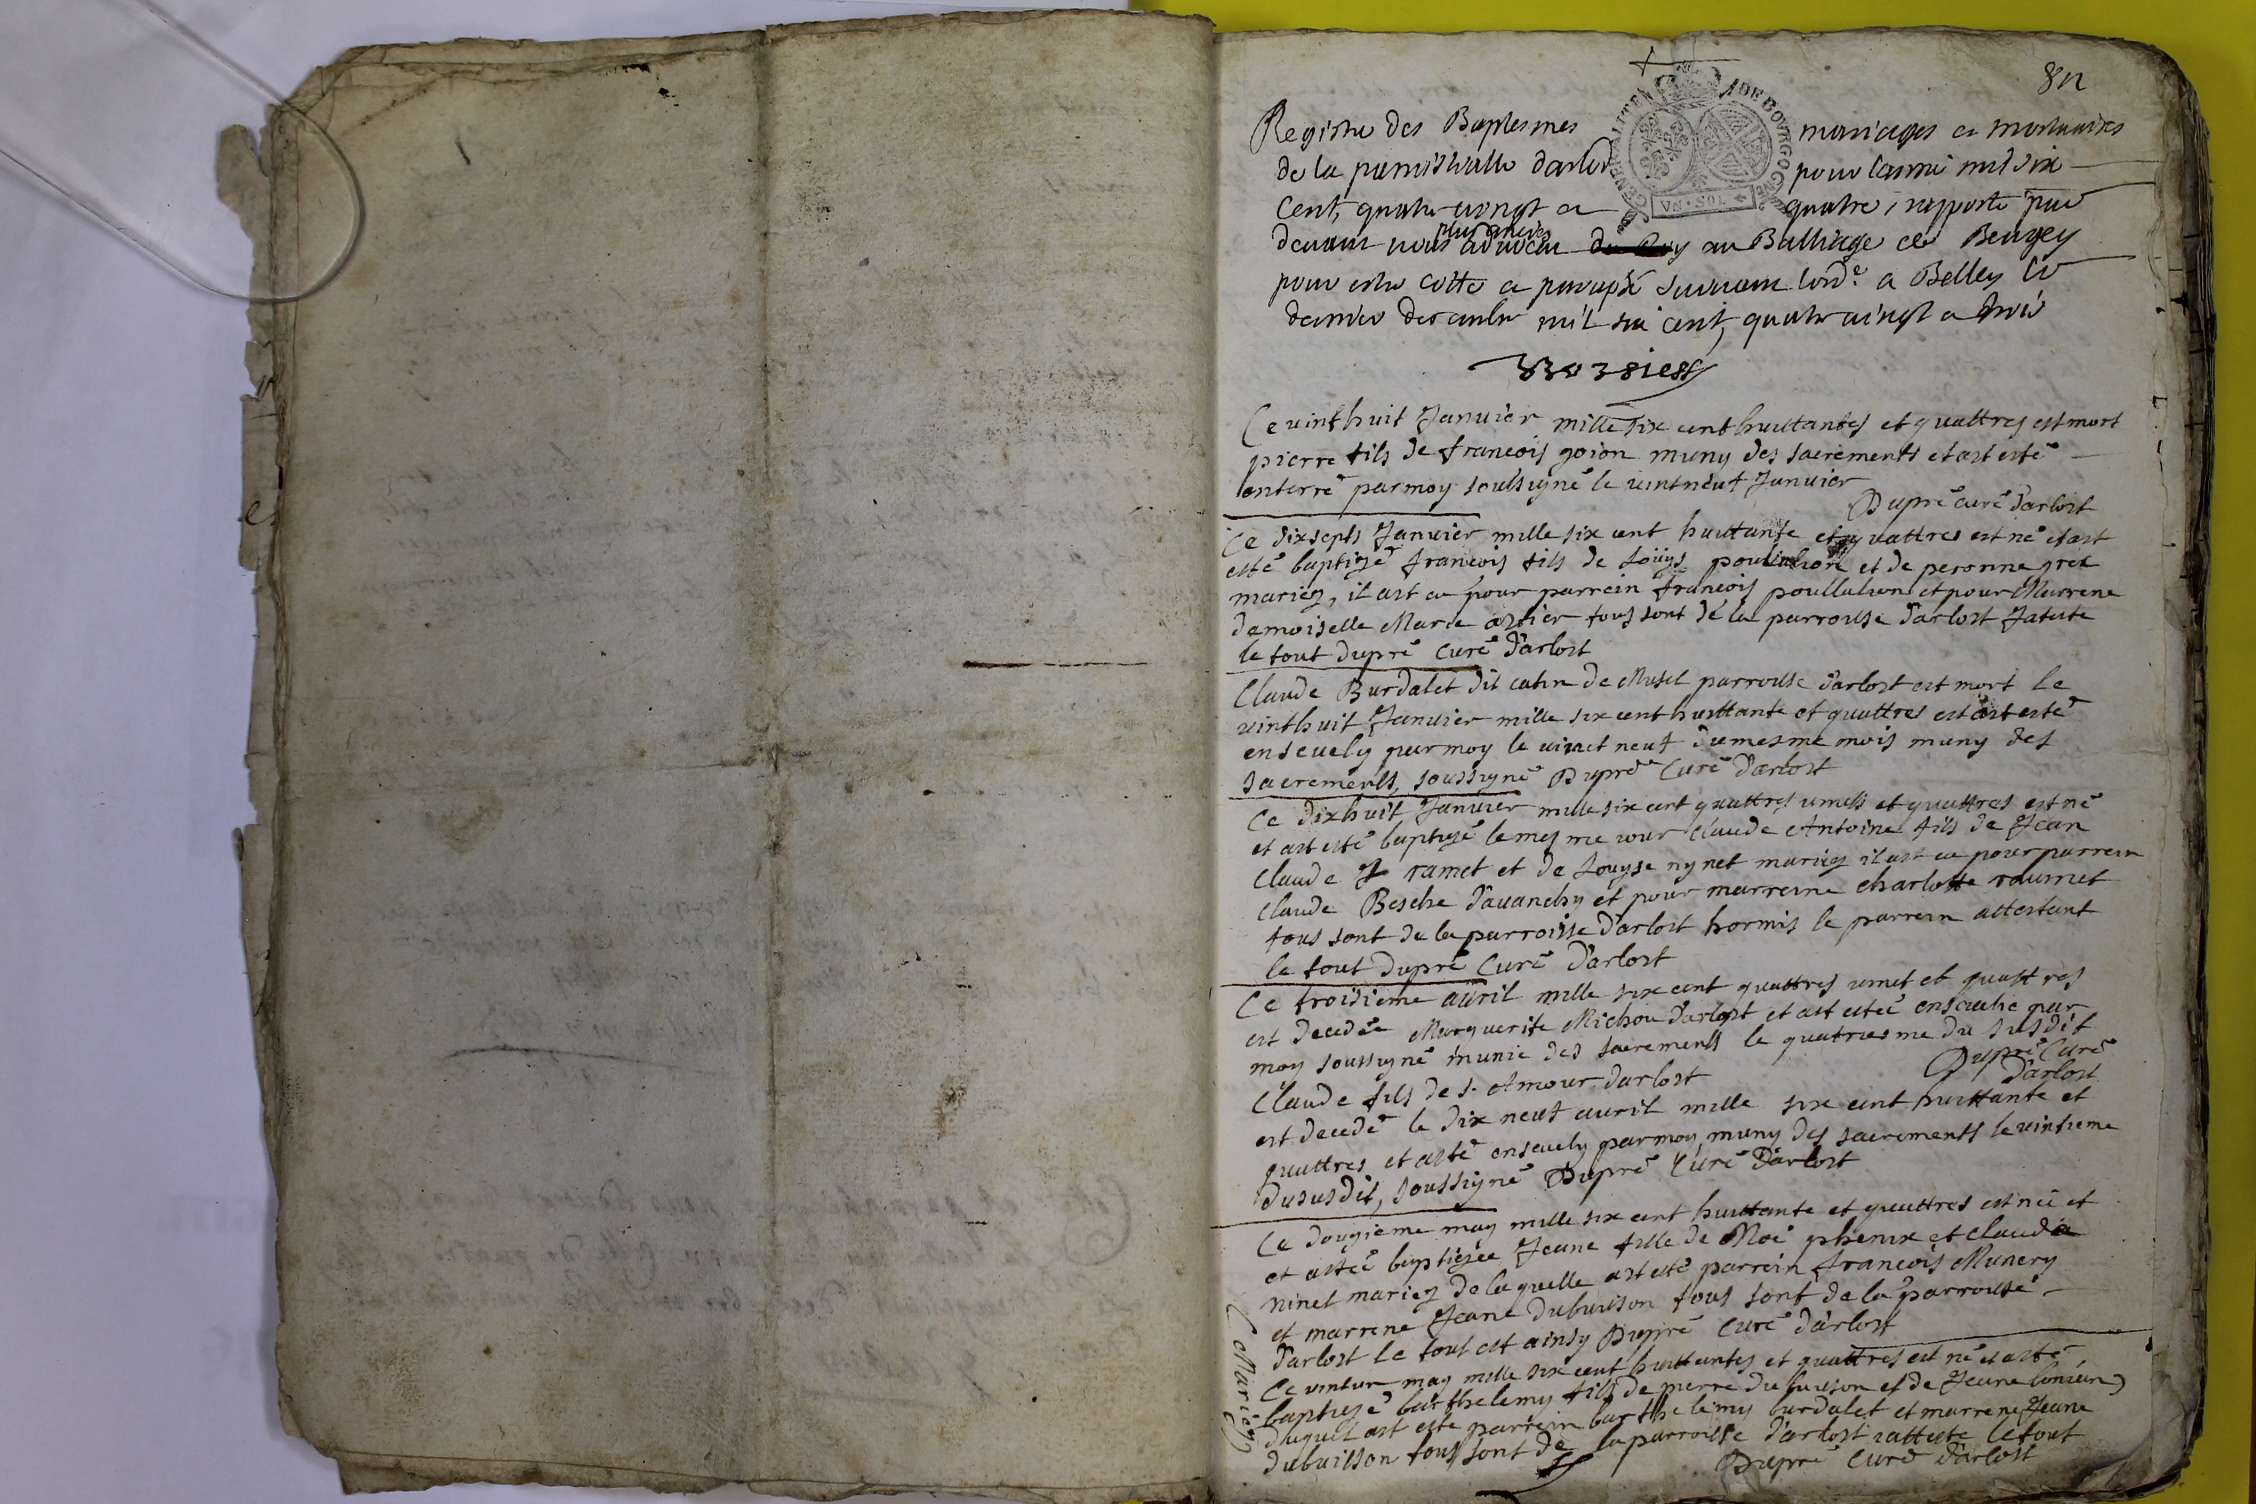 Registre des Baptesmes mariages et mortuaires
de la parroisse darlod pour lannee mil six
Cent, quatre vingt et quatre, rapporté par
devant nous plus ancien advocat au Balliage de Beugey
pour estre cotté et paraphé suivant lord.e a Belley le
dernier decembre mil six cent, quatre vingt et trois
GENERALITE DE BOURGOGNE
VN·SOL
Ce vint huit Janvier mille six cent huittantes et quattres est mort
pierre fils de francois goion muny des sacrements et ast esté
enterré par moy soubsigné le vint neuf Janvier
Dupré curé d'arlost
Ce dix septs Janvier mille six cent huittante et quattres est né et ast
esté baptizé francois fils de Loüys et de peronne
mariez, il ast eu pour parrein francois et pour Marrene
damoiselle Marie tous sont de la parroisse d'arlost Jateste
le tout Dupré Curé d'arlost
Claude Burdalet dit catin de Musel parroisse d'arlost est mort le
vint huit Janvier mille six cent huittante et quattres est ast esté
ensevely par moy le vinct neuf du mesme mois muny des
sacrements, soussigné Dupré Curé d'arlost
Ce dix huit Janvier mille six cent quattres vincts et quattres est né
et ast esté baptizé le mesme iour claude Antoine fils de Jean
Claude ramet et de Louyse nynet mariez il ast eu pour parrein
Claude Besche d'avanchy et pour marreine charlotte
tous sont de la parroisse d'arlost hormis le parrein attestant
le tout Dupré Curé d'arlost
Ce troisieme avril mille six cent quattres vinct et quattres
est decedée Marguerite Michou d'arlost et ast estée ensevelie par
moy soussigné munie des sacrements le quatriesme du susdit
Dupré Curé
d'arlost
Claude fils de s. Amour darlost
est decedé le dix neuf avril mille six cent huittante et
quattres et asté ensevely par moy muny des sacrements le vintieme
du susdit, soussigné Dupré Curé d'arlost
Ce dougieme may mille six cent huittante et quattres est née et
et astée baptizée Jeane fille de Noé phenix et claudia
ninet mariez de laquelle ast esté parrein francois Munery
et marrene Jeane Dubuison tous sont de la parroisse
d'arlost le tout est ainsy Dupré Curé d'arlost
Ce vintun may mille six cent huittantes et quattres est né et asté
baptizé barthelemy fils de pierre du buison et de Jeane
duquel ast esté parrein barthelemy burdalet et marrene Jeane
Dubuisson tous sont de la parroisse d'arlost iatteste le tout
Dupré Curé d'arlost
(Mariéz)